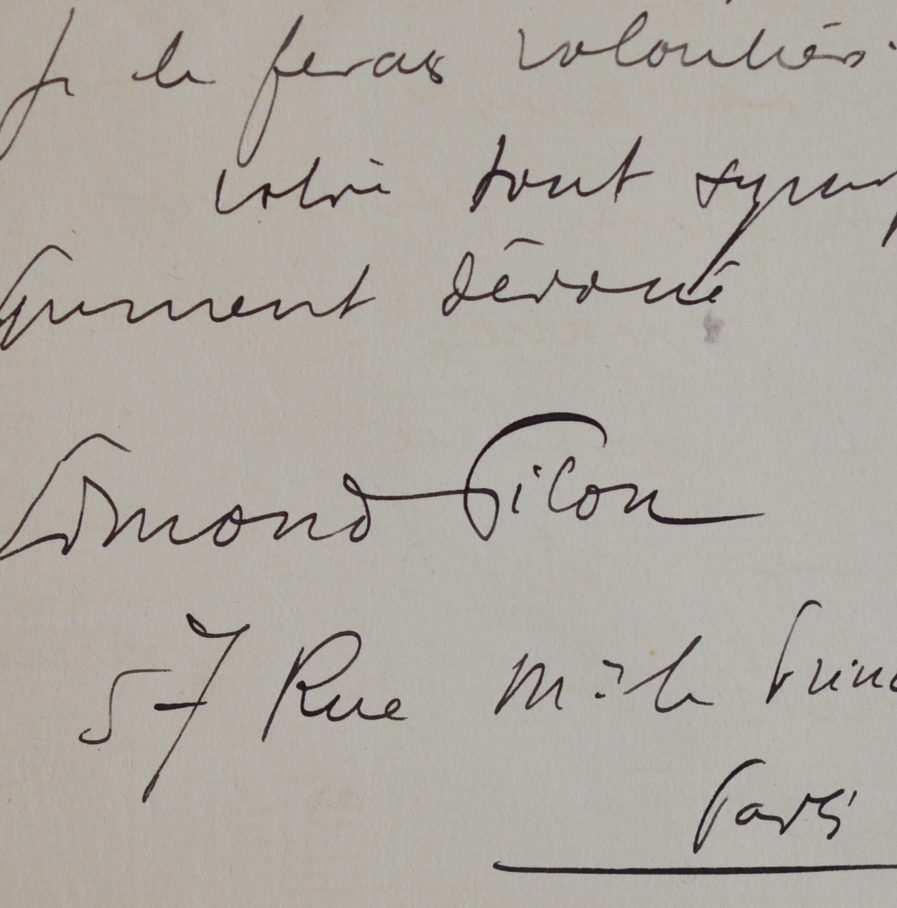 Je le ferai volontiers.
votre tout symp
quement dévoué
Edmond Pilon
57 Rue M=r le Princ
Paris